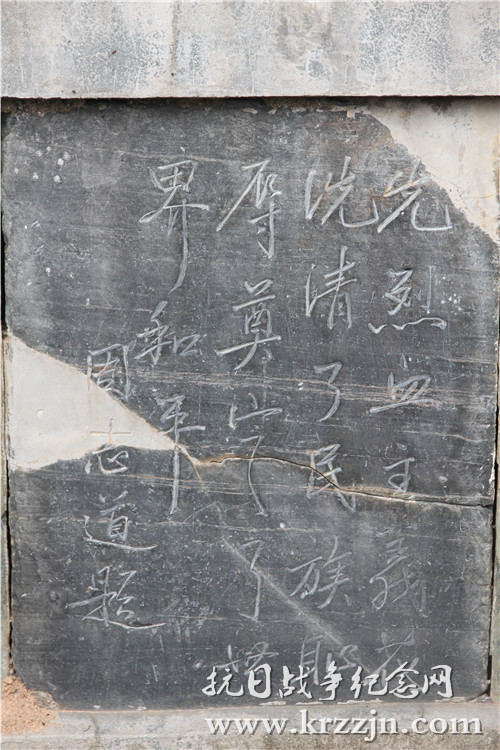 先烈血主義花
洗清了民族
辱奠定了
界和平
周志道題
抗日战争纪念网
www.krzzjn.com